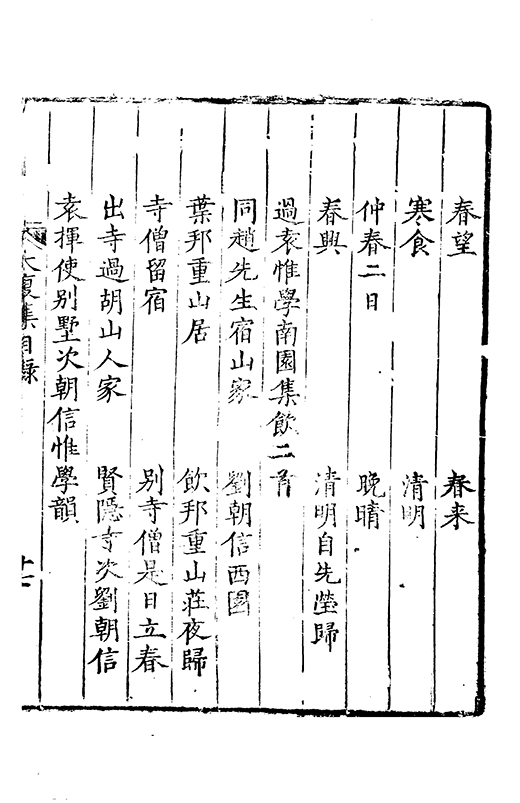 春望　春来
寒食　清明
仲春二日　晚晴
春興　清明自先塋歸
過袁惟學南園集飲二首
同趙先生宿山家　劉朝信西園
葉邦重山居　飲邦重山莊夜歸
寺僧留宿　别寺僧是日立春
出寺過胡山人家　賢隱寺次劉朝信
袁揮使别墅次朝信惟學韻
大復集目録